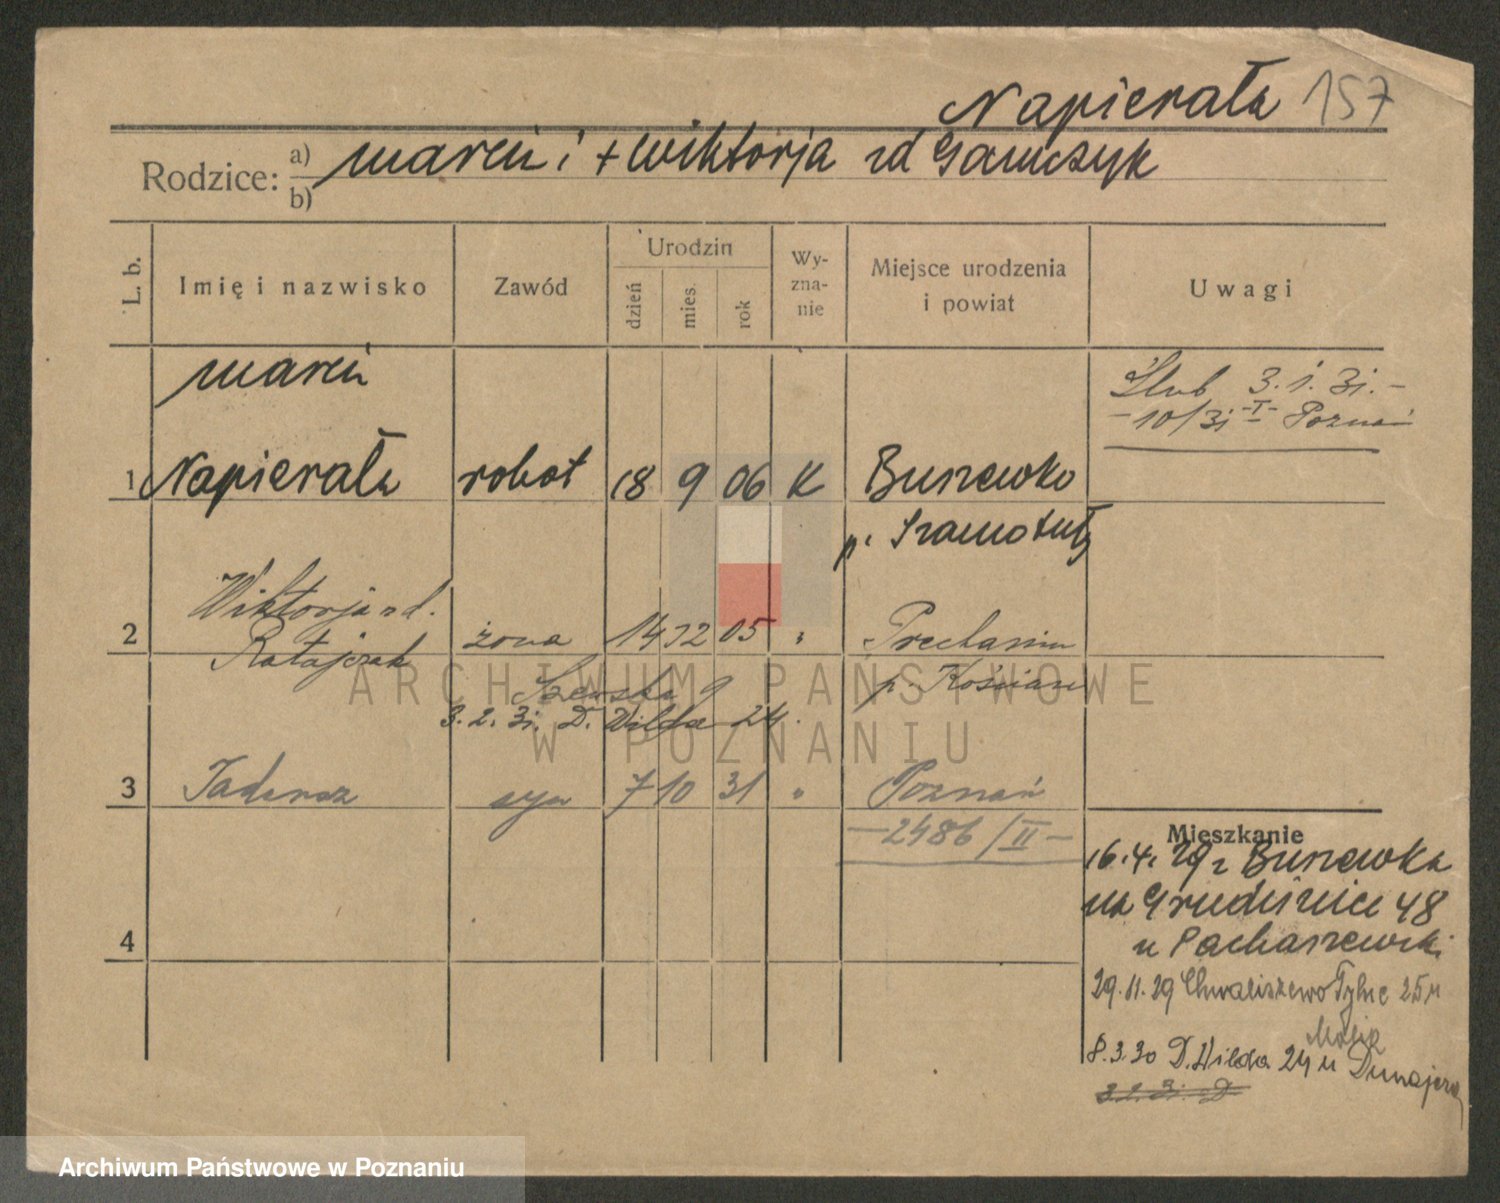 Napierała 157
Rodzice: a) Marcin i + Wiktorja zd Gawczyk
b)
L. b.
Imię i nazwisko
Zawód
Urodzin
dzień
mies.
rok
Wy-
zna-
nie
Miejsce urodzenia
i powiat
Uwagi
Marcin
1 Napierała robot 18 9 06 K Buszewko
p. Szamotuły
Ślub 3.1.31.-
-10/31 -I- Poznań
Wiktorja zd.
2 Ratajczak żona 14 12 05 "
p. Kościan
Szewska 9
3.2.31. D. Wilda 24.
3 Tadeusz syn 7 10 31 " Poznań
-2486/II-
4
Mieszkanie
16.4.29 z Buszewka
na Grudzieniec 48
u Pachaszewski
29.11.29 Chwaliszewo Tylne 25 u
Masia
8.3.30 D. Wilda 24 u Dunajera
3.2.31. D
ARCHIWUM PAŃSTWOWE
W POZNANIU
Archiwum Państwowe w Poznaniu